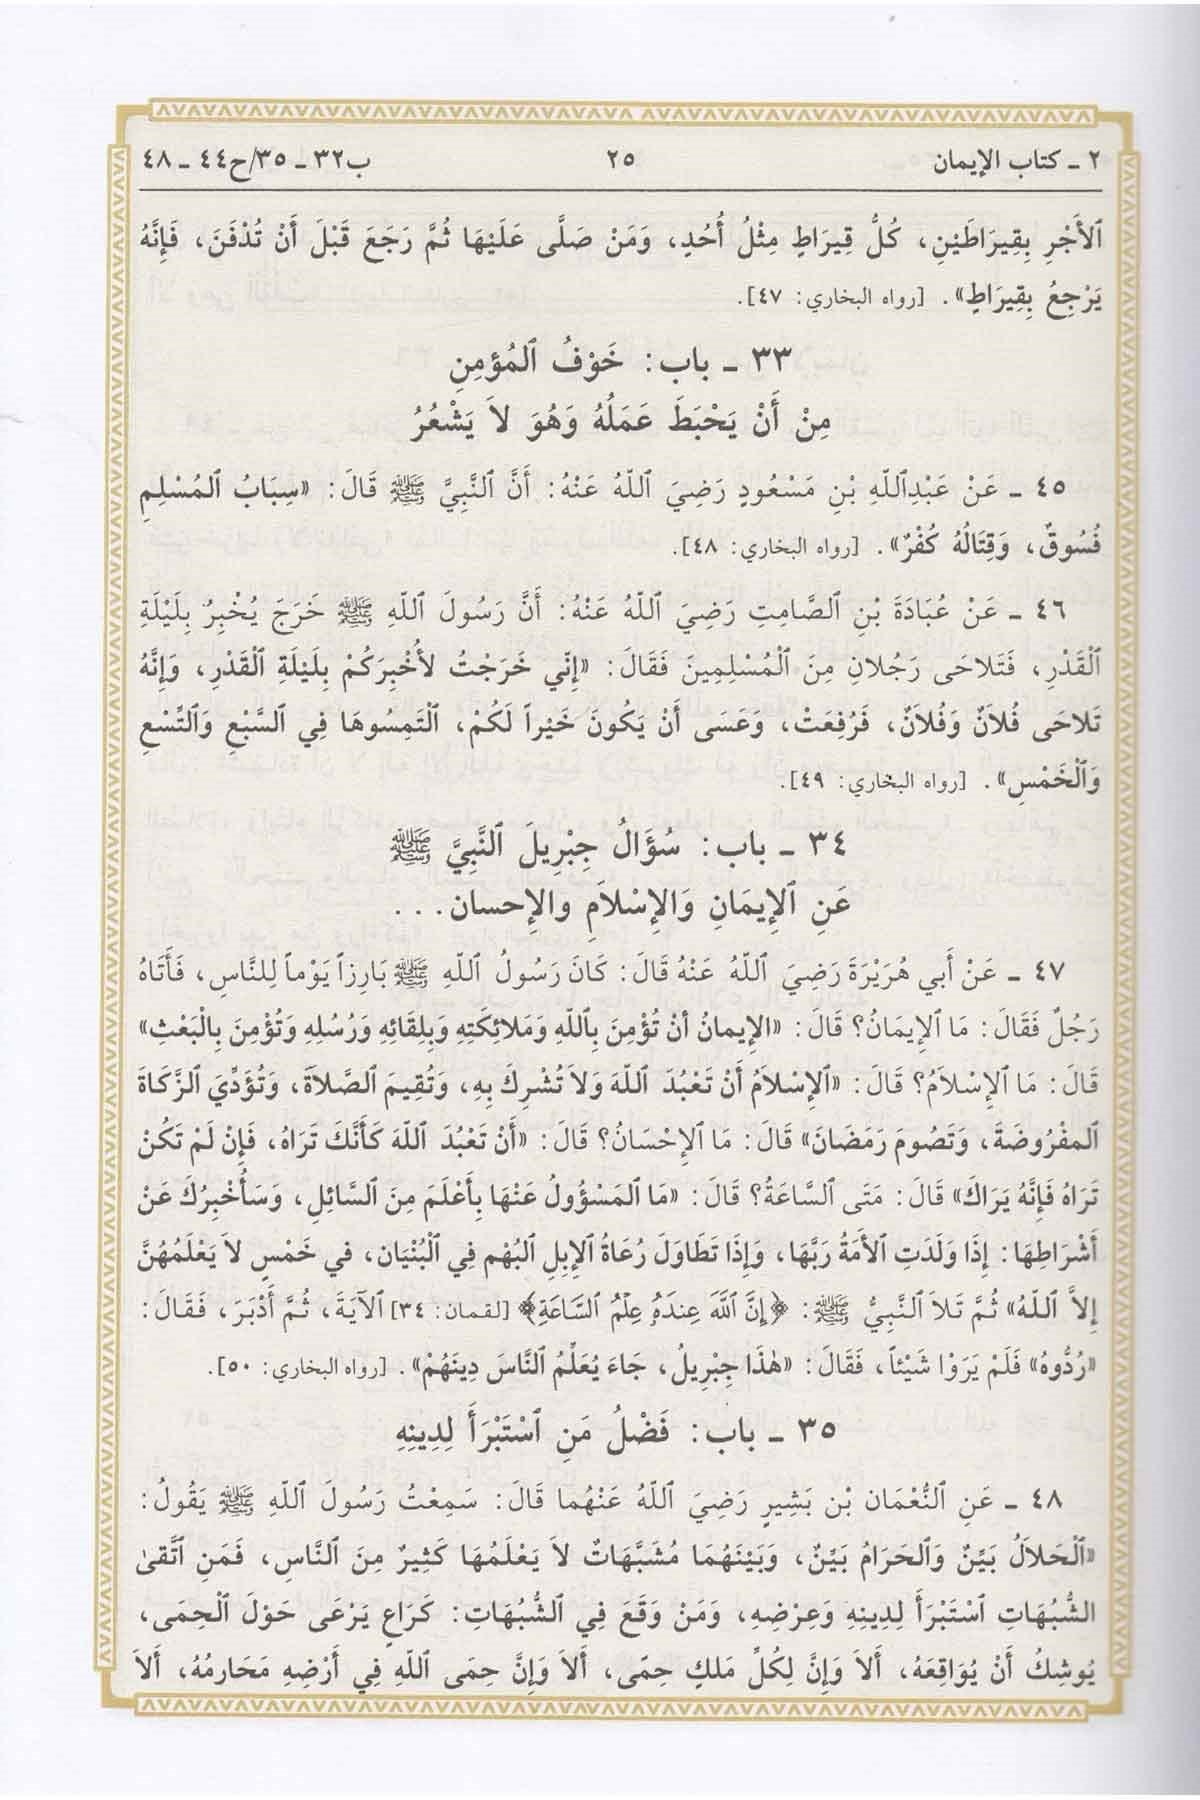 ٢ ـ كتاب الإيمان
٢٥
ب٣٢ ـ ٣٥/ح٤٤ ـ ٤٨
ٱلأَجْرِ بِقِيرَاطَيْنِ، كُلُّ قِيرَاطٍ مِثْلُ أُحُدٍ، وَمَنْ صَلَّى عَلَيْهَا ثُمَّ رَجَعَ قَبْلَ أَنْ تُدْفَنَ، فَإِنَّهُ
يَرْجِعُ بِقِيرَاطٍ». [رواه البخاري: ٤٧].
٣٣ ـ باب: خَوْفُ ٱلمُؤمِنِ
مِنْ أَنْ يَحْبَطَ عَمَلُهُ وَهُوَ لاَ يَشْعُرُ
٤٥ ـ عَنْ عَبْدِٱللّٰهِ بْنِ مَسْعُودٍ رَضِيَ ٱللّٰهُ عَنْهُ: أَنَّ ٱلنَّبِيَّ ﷺ قَالَ: «سِبَابُ ٱلمُسْلِمِ
فُسُوقٌ، وَقِتَالُهُ كُفْرٌ». [رواه البخاري: ٤٨].
٤٦ ـ عَنْ عُبَادَةَ بْنِ ٱلصَّامِتِ رَضِيَ ٱللّٰهُ عَنْهُ: أَنَّ رَسُولَ ٱللّٰهِ ﷺ خَرَجَ يُخْبِرُ بِلَيْلَةِ
ٱلْقَدْرِ، فَتَلاحَى رَجُلانِ مِنَ ٱلْمُسْلِمِينَ فَقَالَ: «إِنّي خَرَجْتُ لأُخْبِرَكُمْ بِلَيْلَةِ ٱلْقَدْرِ، وَإِنَّهُ
تَلاحَى فُلاَنٌ وَفُلاَنٌ، فَرُفِعَتْ، وَعَسَى أَنْ يَكُونَ خَيْراً لَكُمْ، ٱلْتَمِسُوهَا فِي ٱلسَّبْعِ وَٱلتِّسْعِ
وَٱلْخَمْسِ». [رواه البخاري: ٤٩].
٣٤ ـ باب: سُؤَالُ جِبْرِيلَ ٱلنَّبِيَّ ﷺ
عَنِ ٱلإِيمَانِ وَٱلإِسْلاَمِ والإِحسان...
٤٧ ـ عَنْ أَبي هُرَيْرَةَ رَضِيَ ٱللّٰهُ عَنْهُ قَالَ: كَانَ رَسُولُ ٱللّٰهِ ﷺ بَارِزاً يَوْماً لِلنَّاسِ، فَأَتَاهُ
رَجُلٌ فَقَالَ: مَا ٱلإِيمَانُ؟ قَالَ: «الإِيمانُ أَنْ تُؤْمِنَ بِٱللّٰهِ وَمَلائِكَتِهِ وَبِلِقَائِهِ وَرُسُلِهِ وَتُؤْمِنَ بِالْبَعْثِ»
قَالَ: مَا ٱلإِسْلاَمُ؟ قَالَ: «ٱلإِسْلاَمُ أَنْ تَعْبُدَ ٱللّٰهَ وَلاَ تُشْرِكَ بِهِ، وَتُقِيمَ ٱلصَّلاَةَ، وَتُؤَدِّيَ ٱلزَّكَاةَ
ٱلمفْرُوضَةَ، وَتَصُومَ رَمَضَانَ» قَالَ: مَا ٱلإِحْسَانُ؟ قَالَ: «أَنْ تَعْبُدَ ٱللّٰهَ كَأَنَّكَ تَرَاهُ، فَإِنْ لَمْ تَكُنْ
تَرَاهُ فَإِنَّهُ يَرَاكَ» قَالَ: مَتَى ٱلسَّاعَةُ؟ قَالَ: «مَا ٱلمَسْؤُولُ عَنْهَا بِأَعْلَمَ مِنَ ٱلسَّائِلِ، وَسَأُخْبِرُكَ عَنْ
أَشْرَاطِهَا: إِذَا وَلَدَتِ ٱلأَمَةُ رَبَّهَا، وَإِذَا تَطَاوَلَ رُعَاةُ ٱلإِبِلِ ٱلبُهْم فِي ٱلْبُنْيَان، في خَمْسٍ لاَ يَعْلَمُهُنَّ
إِلاَّ ٱللّٰهُ» ثُمَّ تَلاَ ٱلنَّبِيُّ ﷺ: ﴿إِنَّ ٱللَّهَ عِندَهُۥ عِلْمُ ٱلسَّاعَةِ﴾ [لقمان: ٣٤] ٱلآيَةَ، ثُمَّ أَدْبَرَ، فَقَالَ:
«رُدُّوهُ» فَلَمْ يَرَوْا شَيْئاً، فَقَالَ: «هٰذَا جِبْرِيلُ، جَاءَ يُعَلِّمُ ٱلنَّاسَ دِينَهُمْ». [رواه البخاري: ٥٠].
٣٥ ـ باب: فَضْلُ مَنِ ٱسْتَبْرَأَ لِدِينِهِ
٤٨ ـ عَنِ ٱلنُّعْمَان بْن بَشِيرٍ رَضِيَ ٱللّٰهُ عَنْهُما قَالَ: سَمِعْتُ رَسُولَ ٱللّٰهِ ﷺ يَقُولُ:
«ٱلْحَلاَلُ بَيِّنٌ وَٱلحَرَامُ بَيِّنٌ، وَبَيْنَهُمَا مُشَبَّهَاتٌ لاَ يَعْلَمُهَا كَثِيرٌ مِنَ ٱلنَّاسِ، فَمَنِ ٱتَّقىٰ
الشُّبُهَاتِ ٱسْتَبْرَأَ لِدِينِهِ وَعِرْضِهِ، وَمَنْ وَقَعَ فِي ٱلشُّبُهَاتِ: كَرَاعٍ يَرْعَى حَوْلَ ٱلْحِمَى،
يُوشِكُ أَنْ يُوَاقِعَهُ، أَلاَ وَإِنَّ لِكُلِّ مَلكٍ حِمًى، أَلاَ وَإِنَّ حِمَى ٱللّٰهِ فِي أَرْضِهِ مَحَارمُهُ، أَلاَ